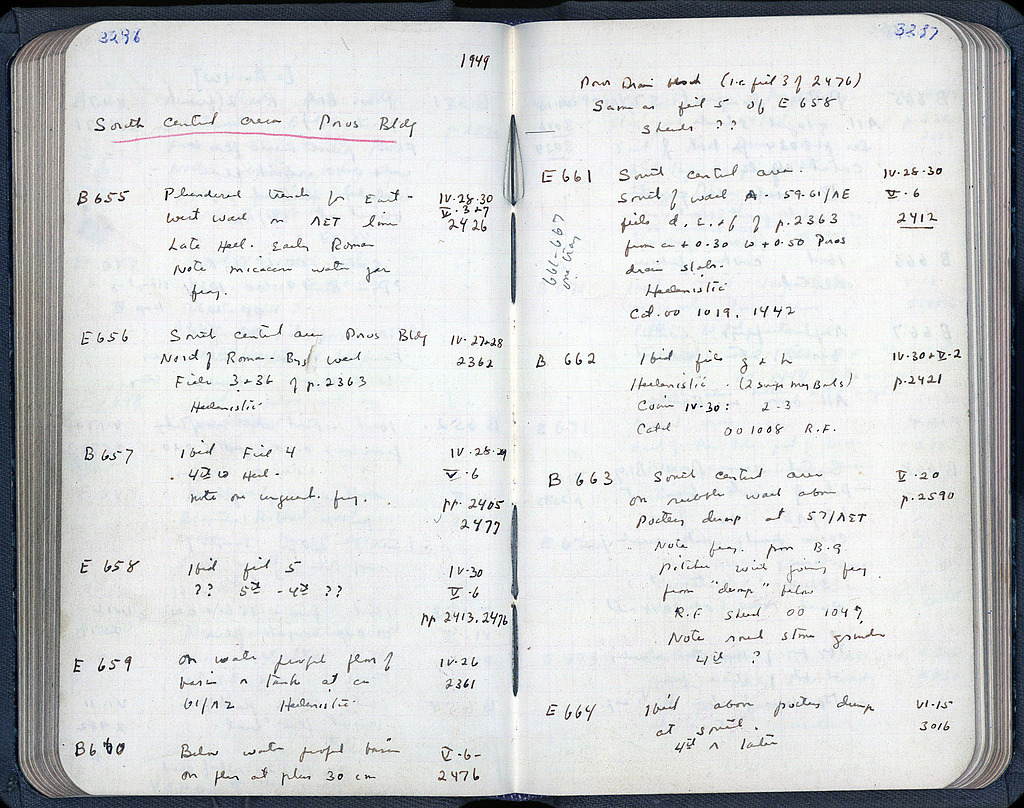 3296
1949
South central area Poros Bldg
B 655 Plundered trench for East - IV·28·30
west wall on ΛΕΤ line V·3+7
2426
Late Hell. Early Roman
Note micaceous water jar
frag.
E 656 South central area Poros Bldg IV·27+28
North of Roman - Byz wall 2362
Fills 3+3b of p. 2363
Hellenistic
B 657 Ibid Fill 4 IV·28·29
4th to Hell. V·6
note on unguent. frag. pp. 2405
2477
E 658 Ibid fill 5 IV·30
?? 5th - 4th ?? V·6
pp 2413, 2476
E 659 on water proof floor of IV·26
basin or tank at ca 2361
61/ΛΖ Hellenistic
B 660 Below water proof basin V·6-
on floor at plus 30 cm 2476
3297
Poros Drain (i.e. fill 3 of 2476)
Same as fill 5 of E 658
sherds ??
661-667
one tray
E 661 South central area. IV·28·30
South of wall 59-61/ΛΕ V·6
fills d, e, + f of p. 2363 2412
from ca + 0.30 to + 0.50 Poros
drain slab.
Hellenistic
Cat. 00 1019, 1442
B 662 Ibid fills g + h IV·30+V·2
Hellenistic. (2 Bowls) p. 2421
Coins IV·30: 2-3
Cat'd 00 1008 R.F.
B 663 South central area V·20
on rubble wall above p. 2590
Potters dump at 57/ΛΕΤ
Note frag. from B.G.
pitcher with joining frag.
from "dump" below
R.F. sherd 00 1047,
Note round stone grinder
4th ?
E 664 Ibid above potters dump VI·15
at south. 3016
4th or later